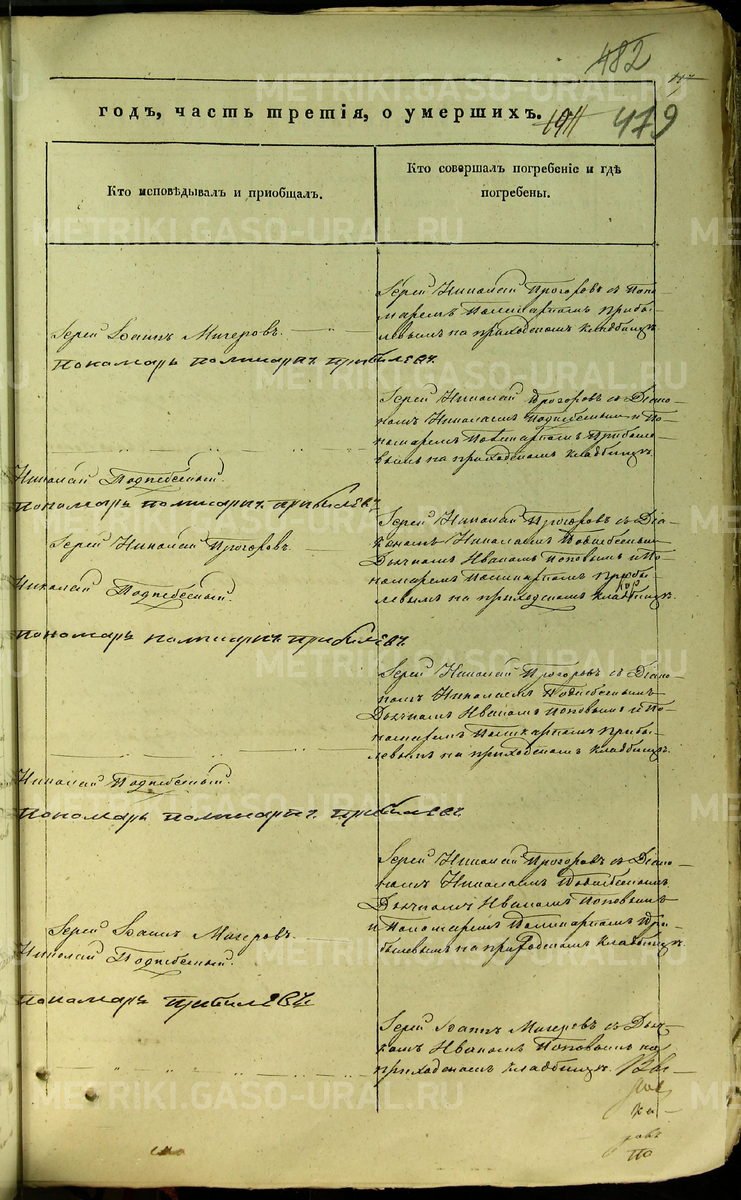 482
479
годъ, часть третія, о умершихъ.
Кто исповѣдывалъ и пріобщалъ.
Кто совершалъ погребеніе и гдѣ
погребены.
METRIKI.GASO-URAL.RU
Іерей Николай Прогоровъ съ Поно-
маремъ Поликарпомъ Прибы-
левымъ на приходскомъ кладбищѣ.
Іерей Іоаннъ
Пономарь Поликарпъ Прибылевъ.
Іерей Николай Прогоровъ съ Діако-
номъ Николаемъ Поднебеснымъ и По-
номаремъ Поликарпомъ Прибыле-
вымъ на приходскомъ кладбищѣ.
Николай Поднебесный.
Пономарь Поликарпъ Прибылевъ
Іерей Николай Прогоровъ.
Николай Поднебесный.
Пономарь Поликарпъ Прибылевъ
Іерей Николай Прогоровъ съ Діа-
кономъ Николаемъ Поднебеснымъ
Дьячкомъ Иваномъ Поповымъ и По-
номаремъ Поликарпомъ Прибы-
левымъ на приходскомъ кладбищѣ.
Іерей Николай Прогоровъ съ Діако-
номъ Николаемъ Поднебеснымъ
Дьячкомъ Иваномъ Поповымъ и По-
номаремъ Поликарпомъ Прибы-
левымъ на приходскомъ кладбищѣ.
Николай Поднебесный.
Пономарь Поликарпъ Прибылевъ
Іерей Николай Прогоровъ съ Діако-
номъ Николаемъ Поднебеснымъ
Дьячкомъ Иваномъ Поповымъ
и Пономаремъ Поликарпомъ При-
былевымъ на приходскомъ кладбищѣ.
Іерей Іоаннъ
Николай Поднебесный.
Пономарь Прибылевъ
Іерей Іоаннъ съ Дьяч-
комъ Иваномъ Поповымъ на
приходскомъ кладбищѣ.